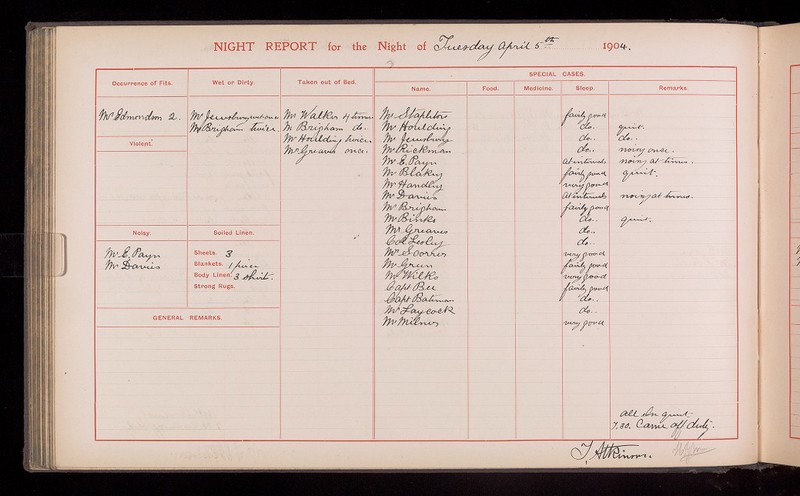 NIGHT REPORT for the Night of Tuesday April 5th 1904.
Occurrence of Fits.
Wet or Dirty.
Taken out of Bed.
SPECIAL CASES.
Name.
Food.
Medicine.
Sleep.
Remarks.
Mr Edmondson 2.
Mr Brigham twice.
Mr Walker 4 times
Mr Brigham do.
Mr Houlding twice.
Mr Greaves once.
Violent.
Noisy.
Mr E. Payn
Mr Davies
Soiled Linen.
Sheets. 3
Blankets. 1 piece
Body Linen. 3 shirts.
Strong Rugs.
GENERAL REMARKS.
Mr Stapleton fairly good
Mr Houlding do. quiet.
Mr do. do.
Mr Rickman do. noisy once.
Mr E. Payn at intervals noisy at times.
Mr Blakey fairly good quiet.
Mr Handley very good
Mr Davies at intervals noisy at times.
Mr Brigham fairly good
Mr Binks do. quiet.
Mr Greaves do.
Col Lesley do.
Mr very good
Mr Green fairly good
Mr Wilks very good
Capt Bee fairly good
Capt Bateman do.
Mr Laycock do.
Mr Milnes very good
All in quiet.
7.30. Came off duty.
T. Atkinson.